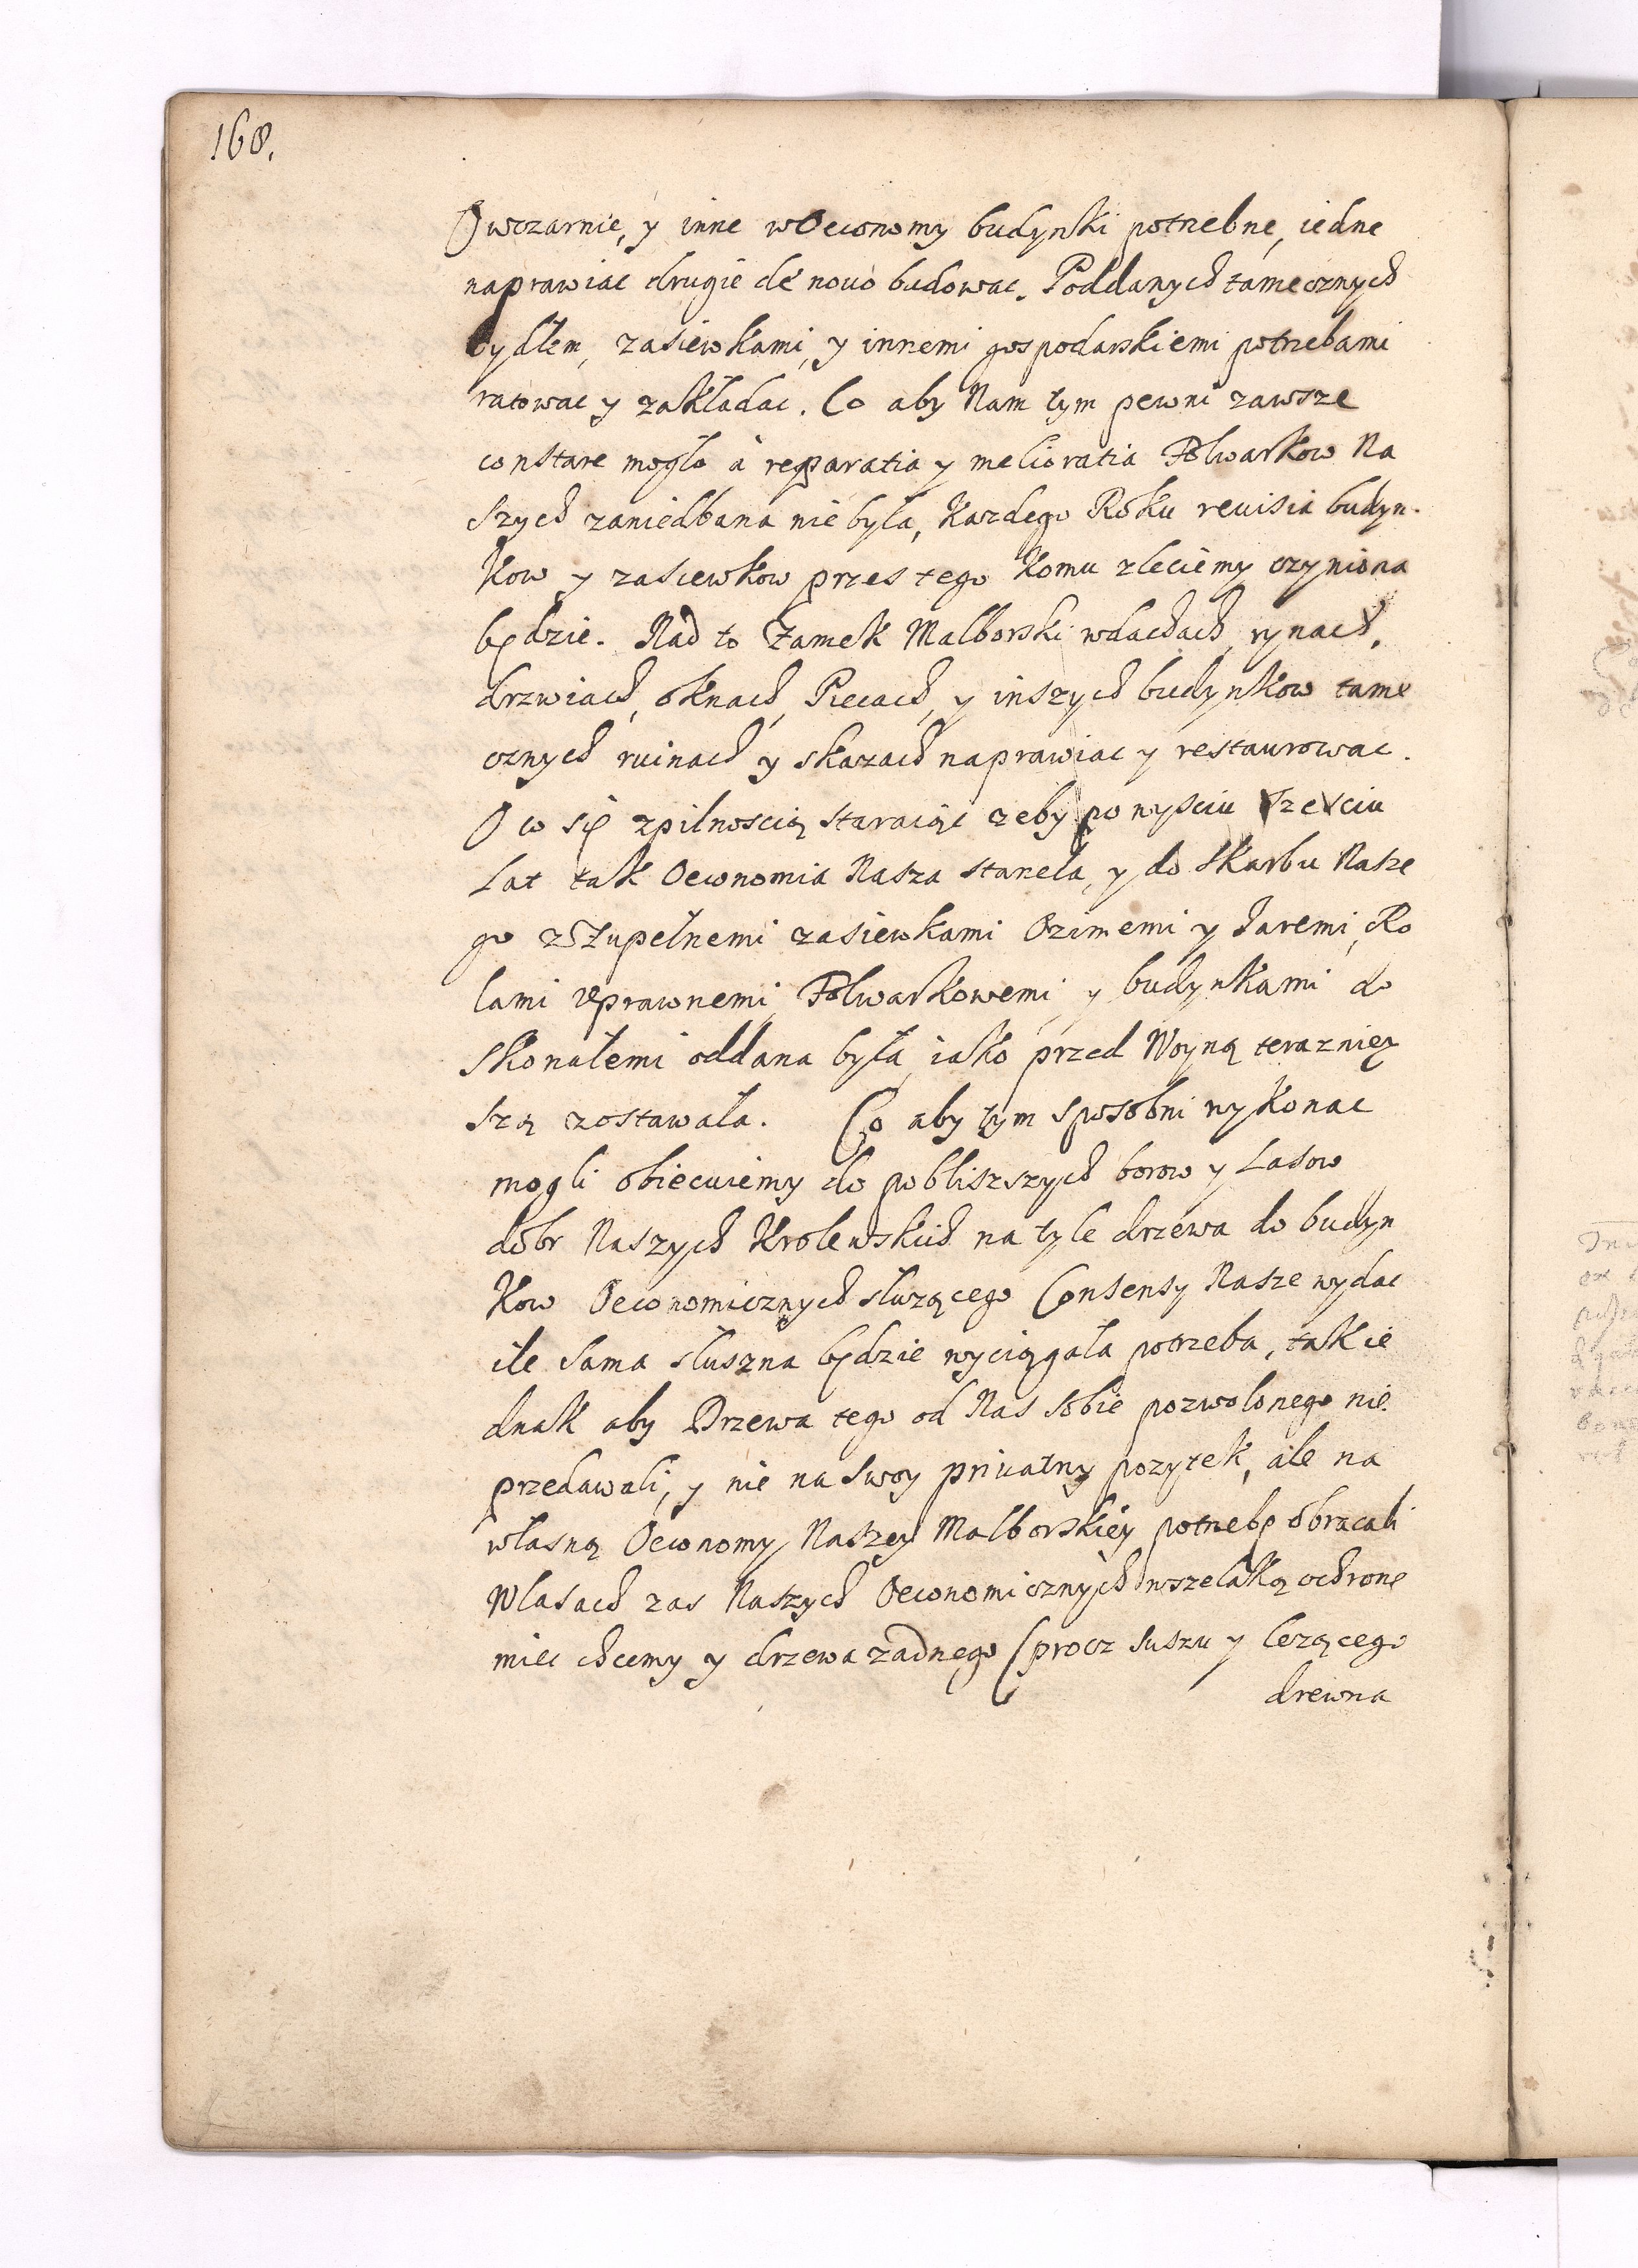 168.
Owczarnie, y inne w Oeconomy budynki potrzebne, iedne
naprawiac drugie de nouo budowac. Poddanych tamecznych
bydłem, zasiewkami, y innemi gospodarskiemi potrzebami
ratowac y zakładac. Co aby Nam tym pewni zawsze
constare mogło à reparatia y melioratia Folwarkow Na
szych zaniedbana nie była, Kazdego Roku reuisia budyn-
kow y zasiewkow przes tego komu zleciemy czyniona
będzie. Nad to Zamek Malborski wdachach, rynach,
drzwiach, oknach, Piecach, y inszych budynkow tame
cznych ruinach y skazach naprawiac y restaurowac.
O co się zpilnoscią staraiąc zeby po wysciu Szesciu
Lat tak Oeconomia Nasza staneła, y do Skarbu Nasze
go z Zupełnemi zasiewkami Ozimemi y Jaremi, Ro
lami vprawnemi, Folwarkowemi, y budynkami do
skonałemi oddana była, iako przed Woyną teraznięy
szą zostawała. Co aby tym sposobni wykonac
mogli obiecuiemy do pobliszszych borow y Lasow
dobr Naszych Krolewskich na tyle drzewa do budyn
kow Oeconomicznych słuzącego Consensy Nasze wydac
ile sama słuszna będzie wyciągała potrzeba, tak ie
dnak aby Drzewa tego od Nas sobie pozwolonego nie
przedawali, y nie na swoy priuatny pozytek, ale na
własną Oeconomy Naszey Malborskiey potrzebę obracali
W lasach zas Naszych Oeconomicznych wszelaką ochronę
miec chcemy y drzewa zadnego (procz suszu y lezącego
drewna